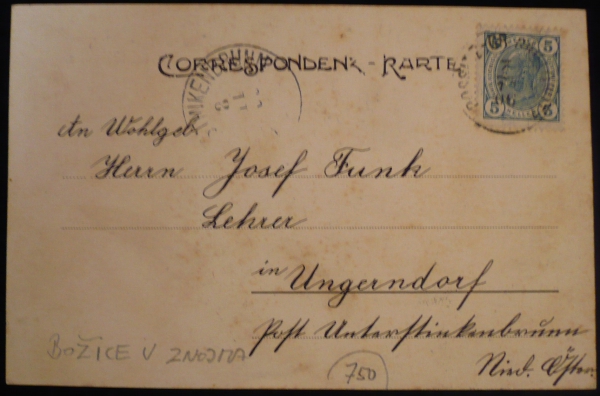 CORRESPONDENZ-KARTE
5 5
5 5
An Wohlgeb.
Herrn Josef Funk
Lehrer
in Ungerndorf
Post Unterstinkenbrunn
Nied. Östen.
BOŽICE U ZNOJMA
750